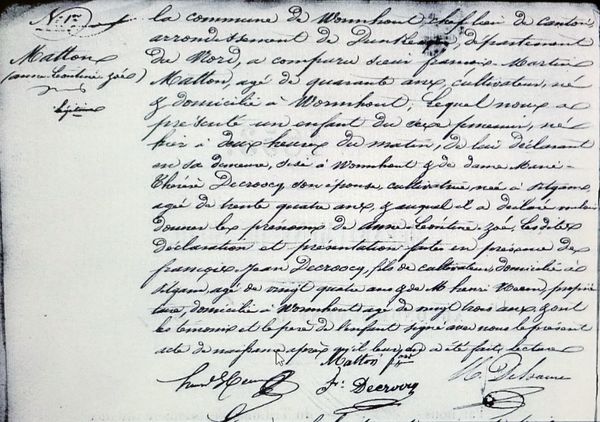 N: 1er
Matton
(anne Léontine zoé)
légitime
la commune de Wormhout chef lieu de canton,
arrondissement de Dunkerque, département
du Nord, a comparu sieur françois-Martin
Matton, agé de quarante ans, cultivateur, né
& domicilié à Wormhout, lequel nous a
présenté un enfant du sexe feminin, né
hier à deux heures du matin, de lui déclarant
en sa demeure, sise à Wormhout & de dame Marie-
Thérèse Decroocq son épouse, cultivatrice, née à
agée de trente quatre ans & auquel il a déclaré vouloir
donner les prénoms de anne-Léontine-zoé. Lesdites
déclaration et présentation faites en présence de
françois-Jean Decroocq, fils de cultivateur, domicilié à
agé de vingt quatre ans & de M. henri
domicilié à Wormhout agé de vingt trois ans, & ont
les temoins et le père de l'enfant signé avec nous le présent
acte de naissance après qu'il leur en a été fait lecture
Matton
F. Decroocq